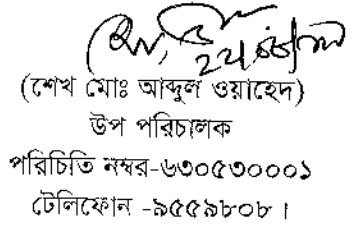 (শেখ মোঃ আব্দুল ওয়াহেদ)
উপ পরিচালক
পরিচিতি নম্বর-৬৩০৫৩০০০১
টেলিফোন -৯৫৫৯৮০৮।